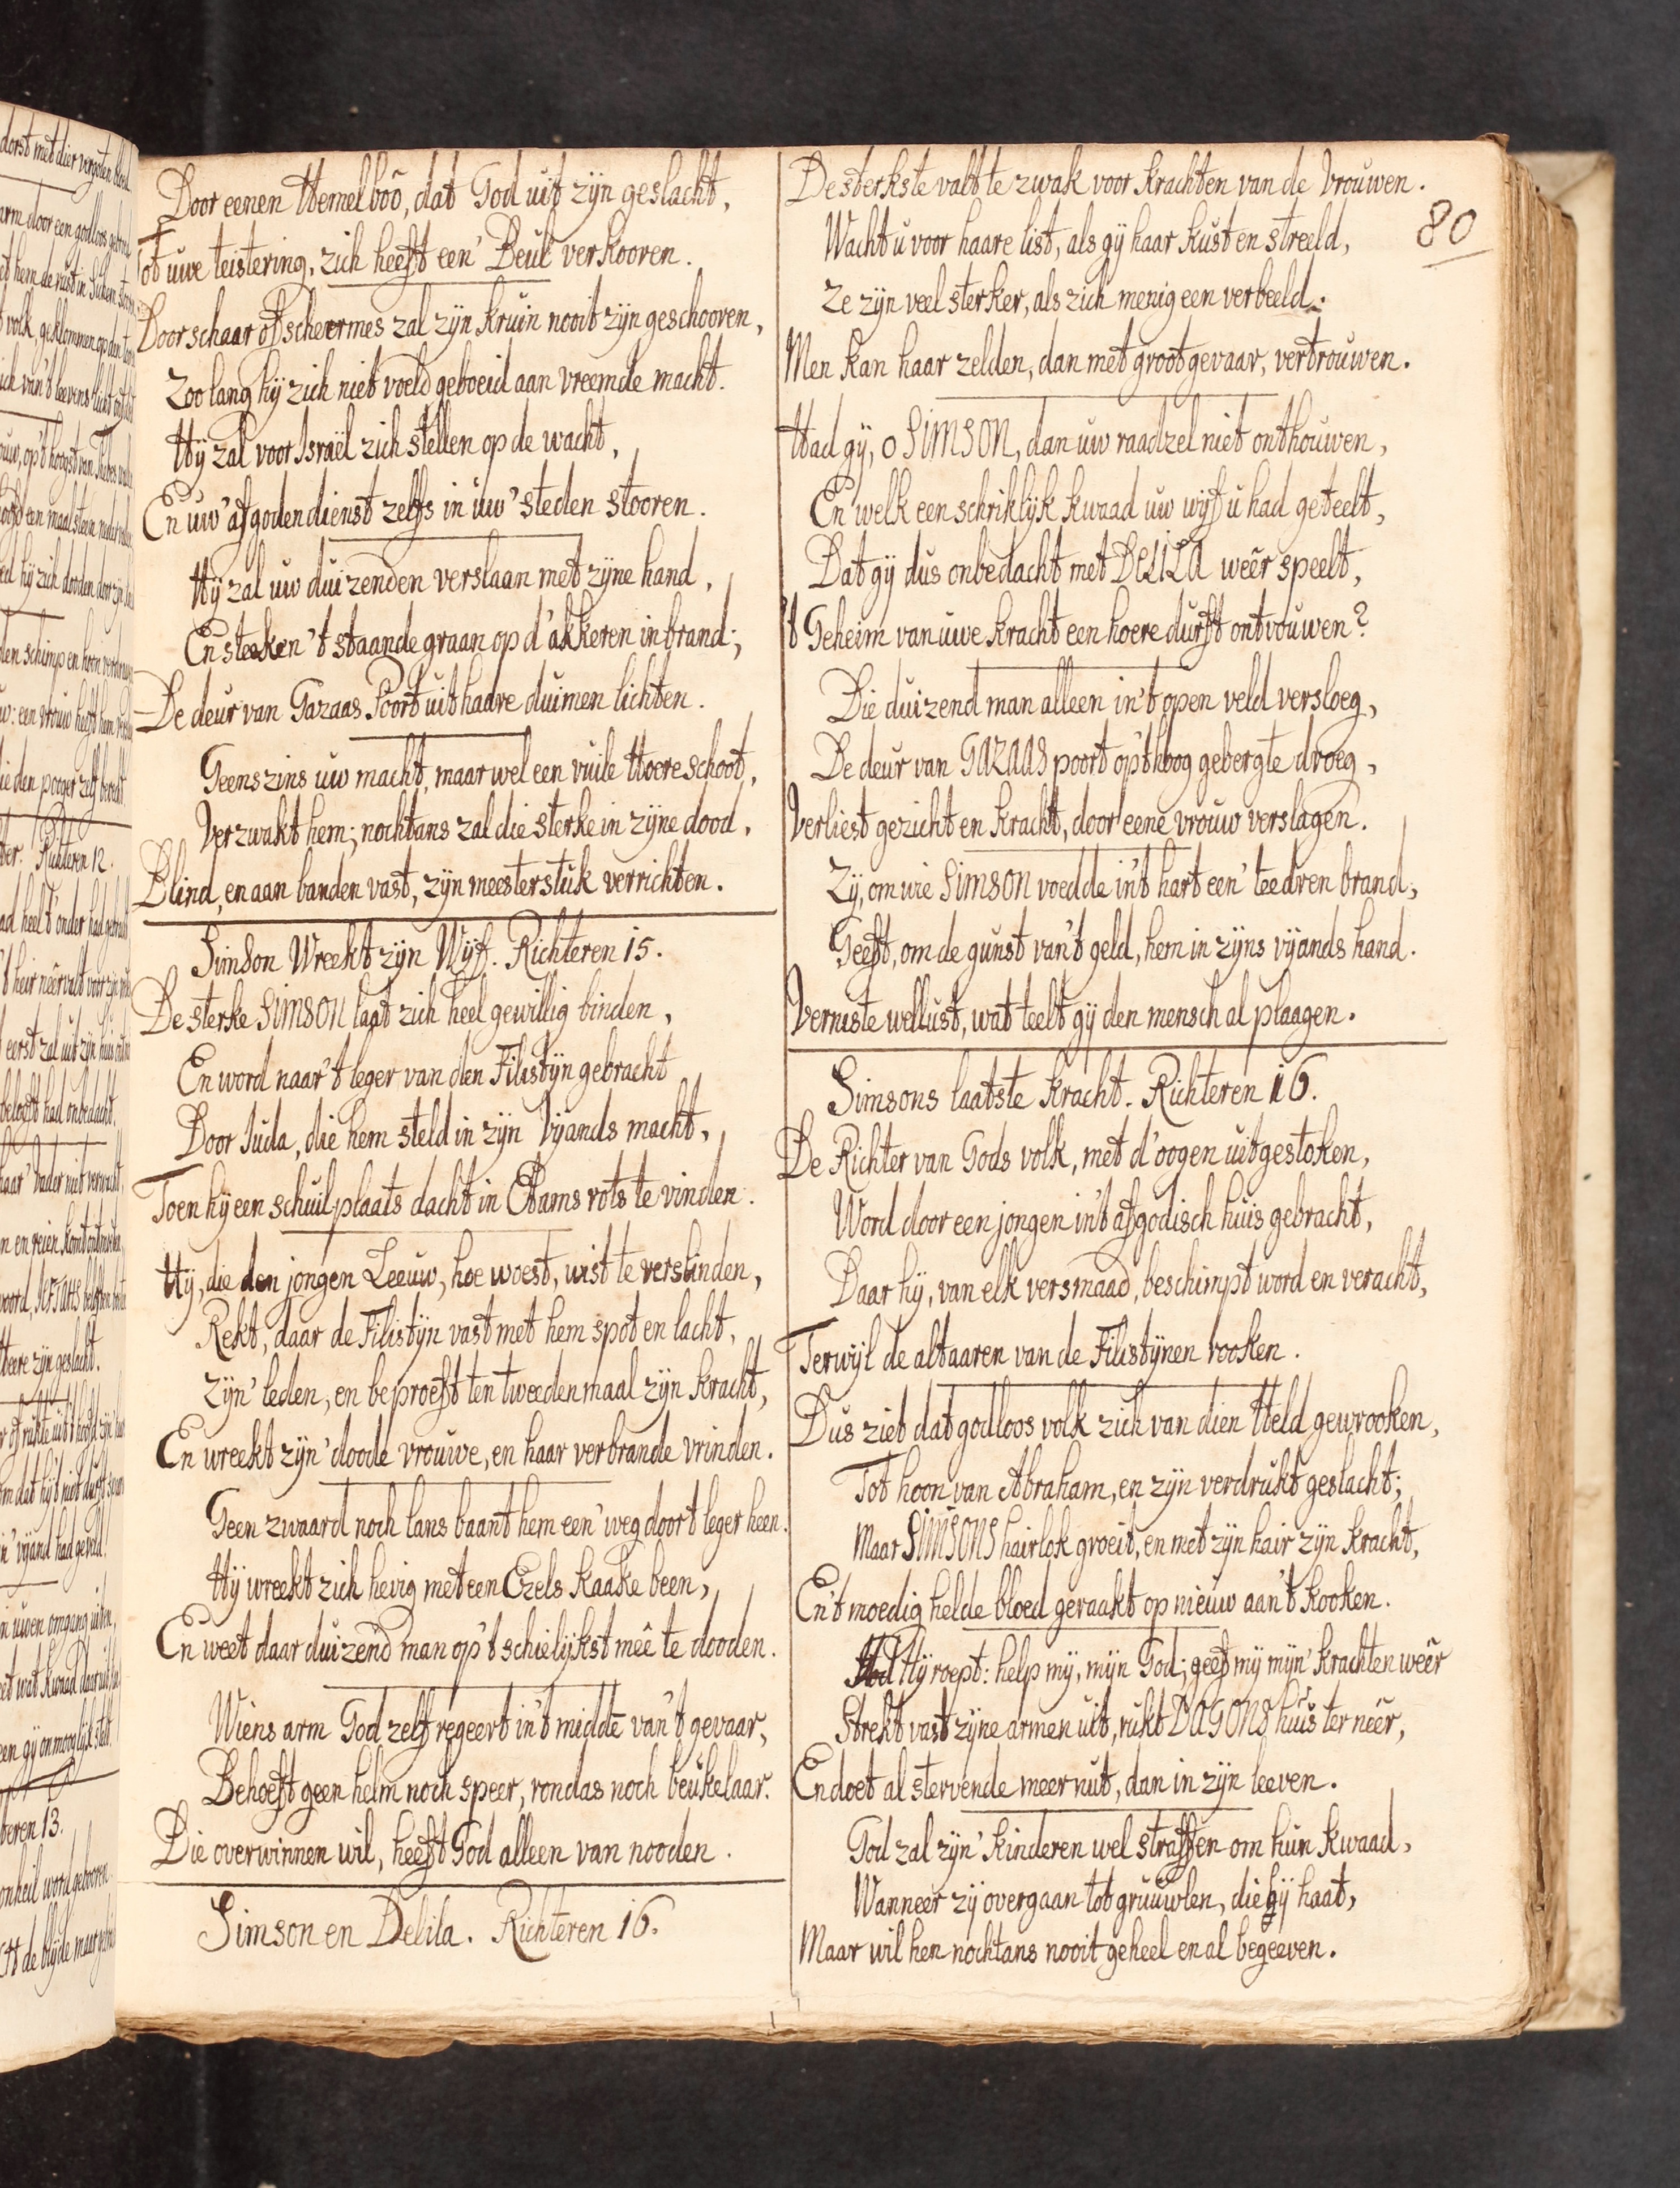 Door eenen Hemelboô, dat God uit zÿn geslacht,
Tot uwe teistering, zich heeft een' Beul verkooren.
Door schaar of scheermes zal zÿn kruin nooit zÿn geschooren,
Zoo lang hÿ zich niet voeld geboeid aan vreemde macht.
Hÿ zal voor Israël zich stellen op de wacht,
En uw' afgodendienst zelfs in uw' steden stooren.
Hÿ zal uw duizenden verslaan met zÿne hand,
En steeken 't staande graan op d' akkeren in brand;
De deur van Gazaas Poort uit haare duimen lichten.
Geenszins uw macht, maar wel een vuile Hoereschoot,
Verzwakt hem; nochtans zal die sterke in zÿne dood,
Blind, en aan banden vast, zÿn meesterstuk verrichten.
Simson Wreekt zÿn Wÿf. Richteren 15.
De sterke SIMSON laat zich heel gewillig binden,
En word naar 't leger van den Filistÿn gebracht
Door Juda, die hem steld in zÿn Vÿands macht,
Toen hÿ een schuilplaats dacht in Etams rots te vinden.
Hÿ, die den jongen Leeuw, hoe woest, wist te verslinden,
Rekt, daar de Filistÿn vast met hem spot en lacht,
Zÿn' leden, en beproeft ten tweedenmaal zÿn kracht,
En wreekt zÿn' doode vrouwe, en haar verbrande vrinden.
Geen zwaard noch lans baant hem een' weg door t leger heen.
Hÿ wreekt zich hevig met een Ezels kaake been,
En weet daar duizend man op 't schielÿkst meê te dooden.
Wiens arm God zelf regeert in 't midde van 't gevaar,
Behoeft geen helm noch speer, rondas noch beukelaar.
Die overwinnen wil, heeft God alleen van nooden.
Simson en Delila. Richteren 16.
80
De sterkste valt te zwak voor krachten van de Vrouwen.
Wacht u voor haare list, als gÿ haar kust en streeld,
Ze zÿn veel sterker, als zich menig een verbeeld.
Men kan haar zelden, dan met groot gevaar, vertrouwen.
Had gÿ, o SIMSON, dan uw raadzel niet onthouwen,
En welk een schriklÿk kwaad uw wÿf u had geteelt,
Dat gÿ dus onbedacht met DELILA weêr speelt,
't Geheim van uwe kracht een hoere durft ontvouwen?
Die duizend man alleen in 't open veld versloeg,
De deur van GAZAAS poort op 't hoog gebergte droeg,
Verliest gezicht en kracht, door eene vrouw verslagen.
Zÿ, om wie SIMSON voedde in 't hart een' teedren brand,
Geeft, om de gunst van 't geld, hem in zÿns vÿands hand.
Vervuiste wellust, wat teelt gÿ den mensch al plaagen.
Simsons laatste kracht. Richteren 16.
De Richter van Gods volk, met d' oogen uitgestoken,
Word door een jongen in 't afgodisch huis gebracht,
Daar hÿ, van elk versmaad, beschimpt word en veracht,
Terwÿl de altaaren van de Filistÿnen rooken.
Dus ziet dat godloos volk zich van dien Held gewrooken,
Tot hoon van Abraham, en zÿn verdrukt geslacht;
Maar SIMSONS hairlok groeit, en met zÿn hair zÿn kracht,
En 't moedig helde bloed geraakt op nieuw aan 't kooken.
Hÿ roept: help mÿ, mÿn God; geef mÿ mÿn' krachten weêr
Strekt vast zÿne armen uit, rukt DAGONS huis ter neêr,
En doet al stervende meer nut, dan in zÿn leeven.
God zal zÿn' kinderen wel straffen om hun kwaad,
Wanneer zÿ overgaan tot gruuwlen, die hÿ haat,
Maar wil hen nochtans nooit geheel en al begeeven.